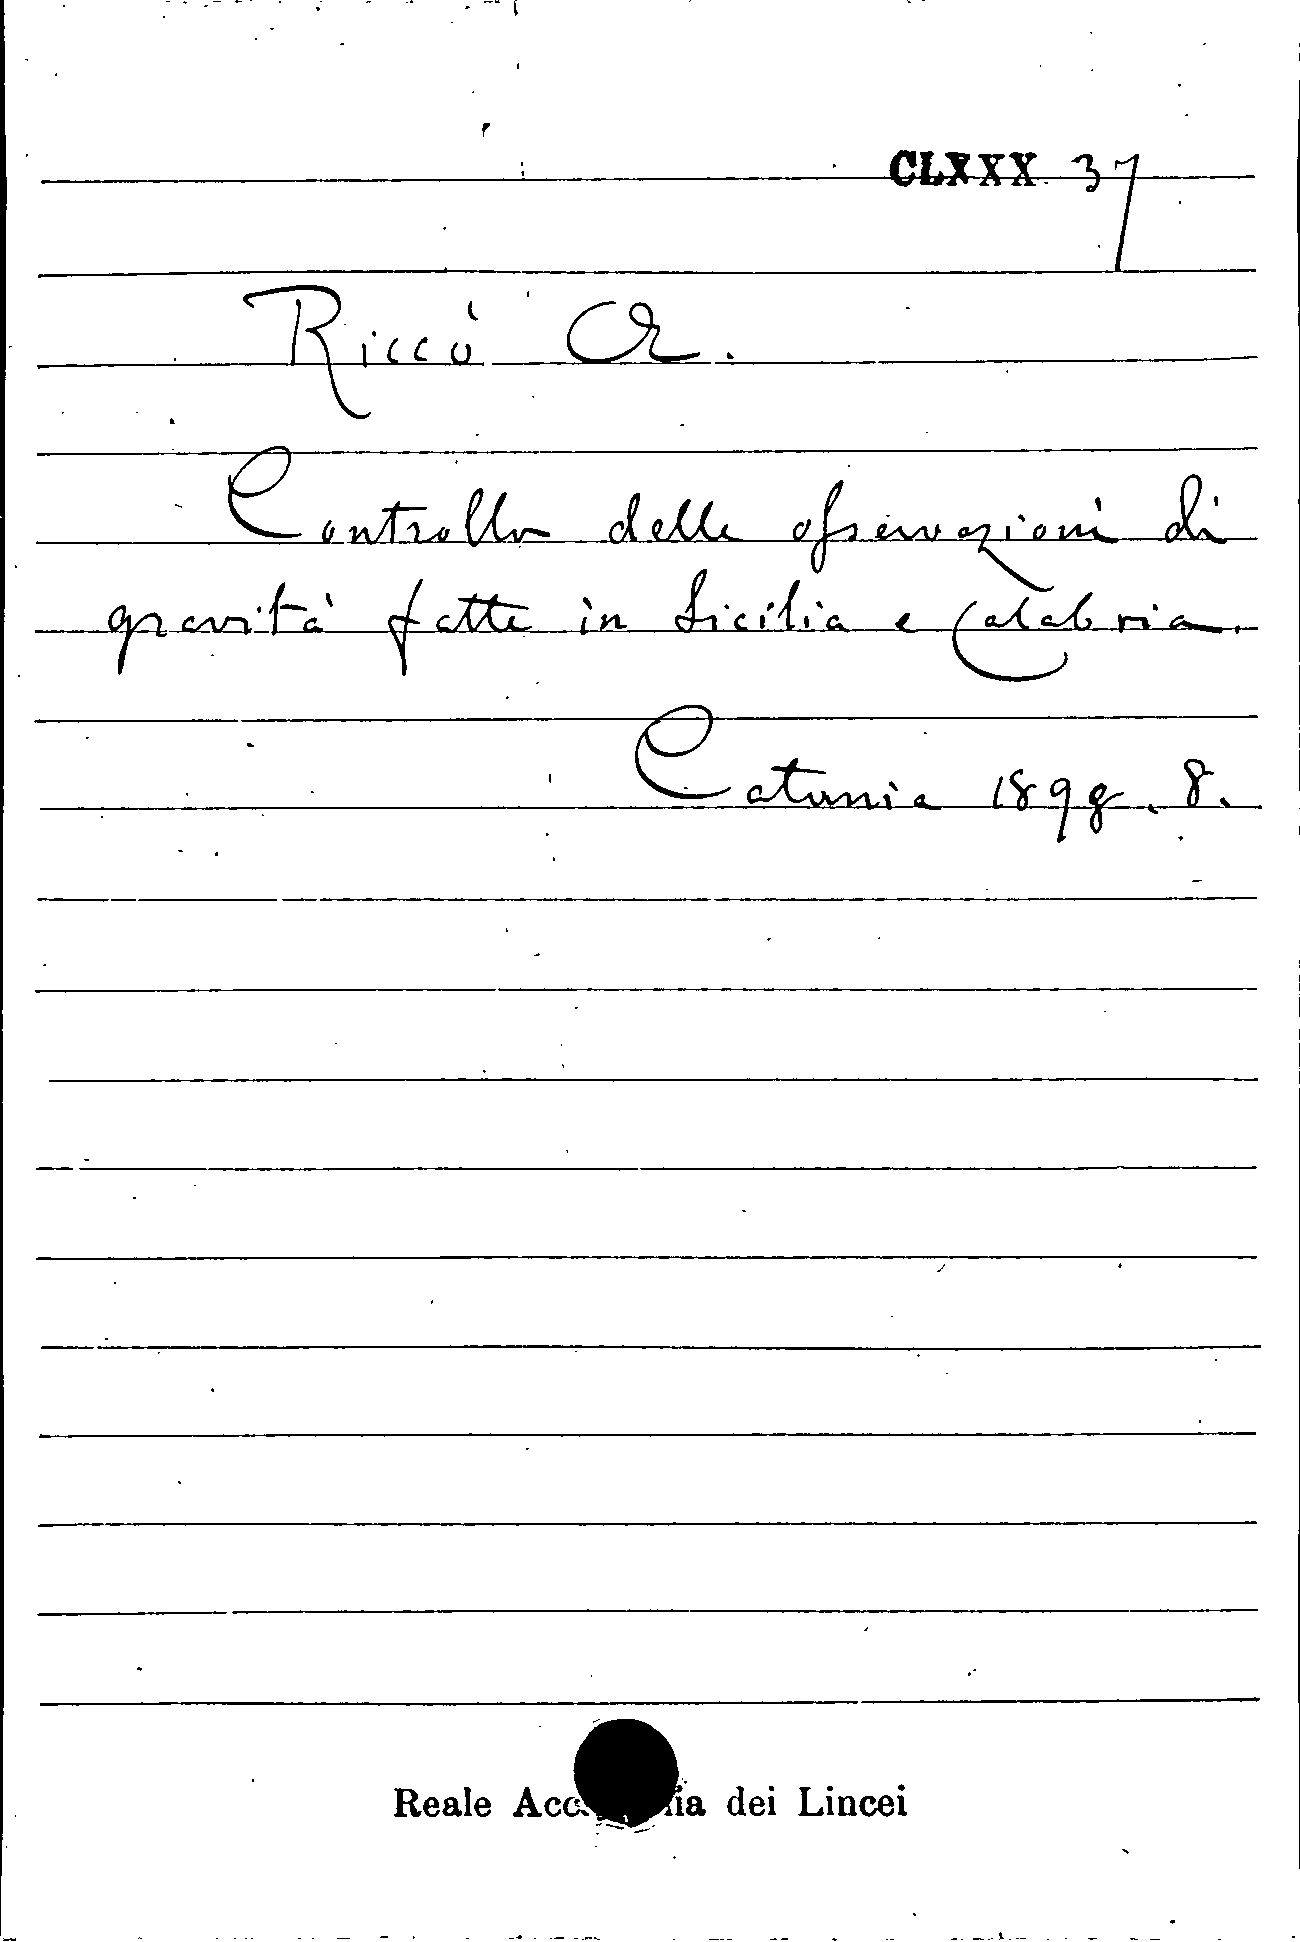 CLXXX 37
Riccò A.
Controllo delle osservazioni di
gravità fatte in Sicilia e Calabria.
Catania 1898. 8.
Reale dei Lincei